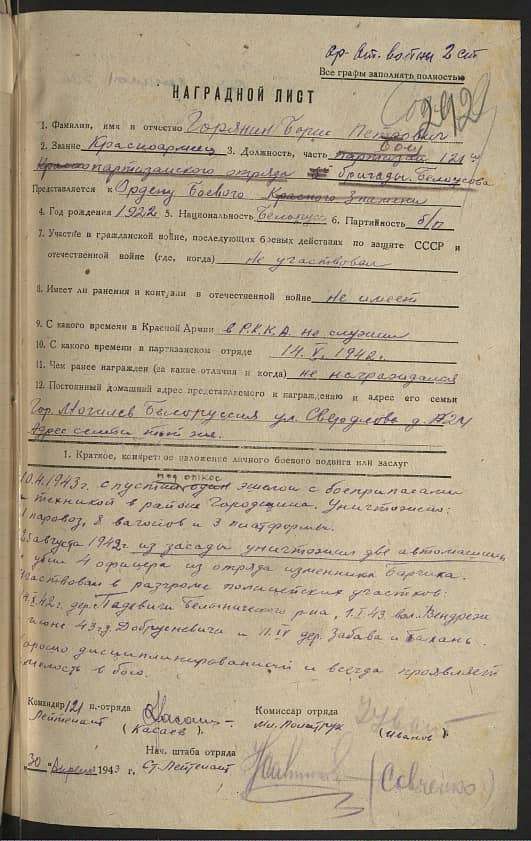 ор. От. войны 2 ст
Все графы заполнять полностью
НАГРАДНОЙ ЛИСТ
292
1. Фамилия, имя и отчество Горянин Борис Петрович
2. Звание Красноармеец 3. Должность, часть партизан Боец 121
партизанского отряда бригады Белоусова
Представляется к Ордену Боевого Красного Знамени
4. Год рождения 1922 5. Национальность Белорус 6. Партийность б/п
7. Участие в гражданской войне, последующих боевых действиях по защите СССР и
отечественной войне (где, когда) Не участвовал
8. Имеет ли ранения и контузии в отечественной войне Не имеет
9. С какого времени в Красной Армии в Р.К.К.А. не служил
10. С какого времени в партизанском отряде 14.V.1942г.
11. Чем ранее награжден (за какие отличия и когда) не награждался
12. Постоянный домашний адрес представляемого к награждению и адрес его семьи
Гор. Могилев Белоруссия ул. Свердлова д. №24
Адрес семьи тот же.
1. Краткое, конкретное изложение личного боевого подвига или заслуг
под откос
1943г. спустил один эшелон с боеприпасами
и техникой в районе Городщина. Уничтожено:
1 паровоз, 8 вагонов и 3 платформы.
августа 1942г. из засады уничтожил две автомашины
убил 4 офицера из отряда изменника
Участвовал в разгроме полицейских участков:
42г. дер. Белыничского р-на, 1.I.43. Вендреж
июне 43г. и 11.IV дер. Забава и
Хорошо дисциплинированный и всегда проявляет
смелость в бою.
Командир 121 п.-отряда
Лейтенант (Касаев)
Комиссар отряда
Мл. Политрук (Иванов)
Нач. штаба отряда
30 "Апреля 1943 г. Ст. Лейтенант (Савченко)